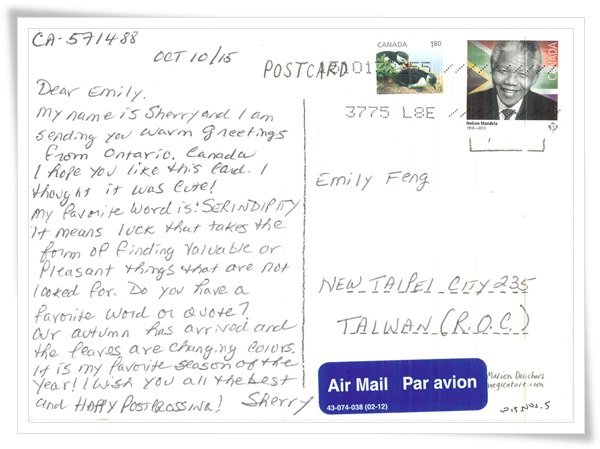 CA-571488
OCT 10/15
POSTCARD
Dear Emily.
My name is Sherry and I am
sending you warm Greetings
From Ontario, Canada
I hope you like this Card. I
thought it was Cute!
My favorite word is: SERINDIPITY
It means luck that takes the
form of finding valuable or
pleasant things that are not
looked for. Do you have a
favorite word or quote?
Our autumn has arrived and
the leaves are changing colors.
It is my favorite season of the
year! I wish you all the best
and HAPPY POSTCROSSING! Sherry
CANADA
1.80
CANADA
Nelson Mandela
1918-2013
P
3775 L8E
Emily Feng
NEW TAIPEI CITY 235
TAIWAN (R.O.C.)
Air Mail Par avion
43-074-038 (02-12)
Marion Deuchars